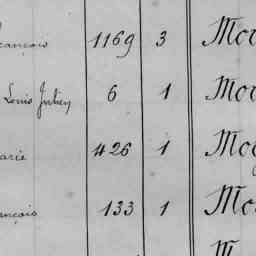 rançois 1169 3 Mor
Louis Julien 6 1 Mor
arie 426 1 Mo
ançois 133 1 Mo
M